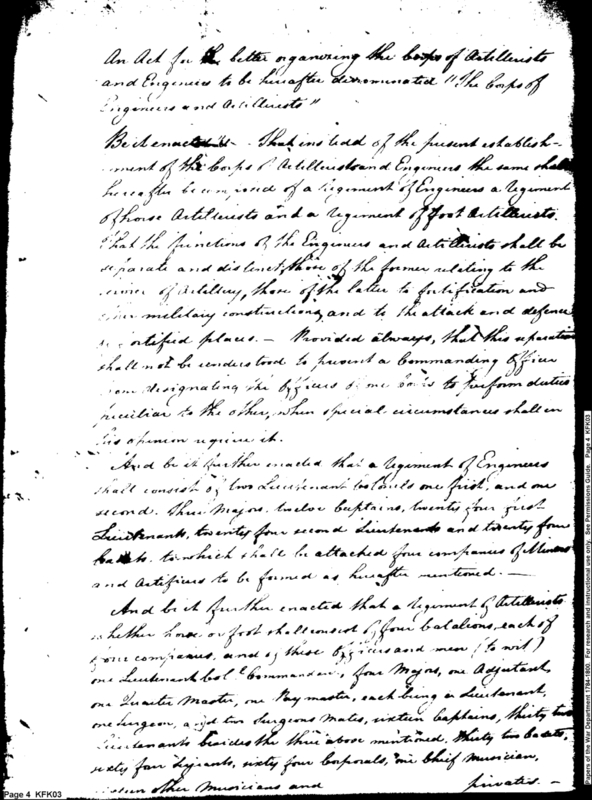 An Act for the better organizing the Corps of Artillerists
and Engineers to be hereafter denominated "The Corps of
Engineers and Artillerists"
Be it enacted &c - That instead of the present establish-
ment of the Corps of Artillerists and Engineers the same shall
hereafter be composed of a Regiment of Engineers a Regiment
of horse Artillerists and a regiment of foot Artillerists.
That the functions of the Engineers and Artillerists shall be
separate and distinct, those of the former relating to the
service of Artillery, those of the latter to fortification and
other military constructions, and to the attack and defence
of fortified places. - Provided always, that this separation
shall not be understood to prevent a Commanding Officer
from designating the Officers of one Corps to perform duties
peculiar to the other, when special circumstances shall in
his opinion require it.
And be it further enacted that a regiment of Engineers
shall consist of two Lieutenant Colonels one first, and one
second. Three Majors, twelve Captains, twenty four first
Lieutenants, twenty four second Lieutenants and twenty four
Cadets, to which shall be attached four companies of Miners
and Artificers to be formed as hereafter mentioned. -
And be it further enacted that a regiment of Artillerists
whether horse or foot shall consist of four batalions, each of
four companies, and of these officers and men (to wit)
one Lieutenant Col. Commandant, four Majors, one Adjutant,
one Quarter Master, one Paymaster, each being a Lieutenant,
one Surgeon, and two Surgeons Mates, sixteen Captains, thirty two
Lieutenants besides the three above mentioned, thirty two Cadets,
sixty four Serjeants, sixty four Corporals, one chief Musician,
other Musicians and privates. -
Page 4 KFK03
Papers of the War Department 1784-1800. For research and instructional use only. See Permissions Guide. Page 4 KFK03